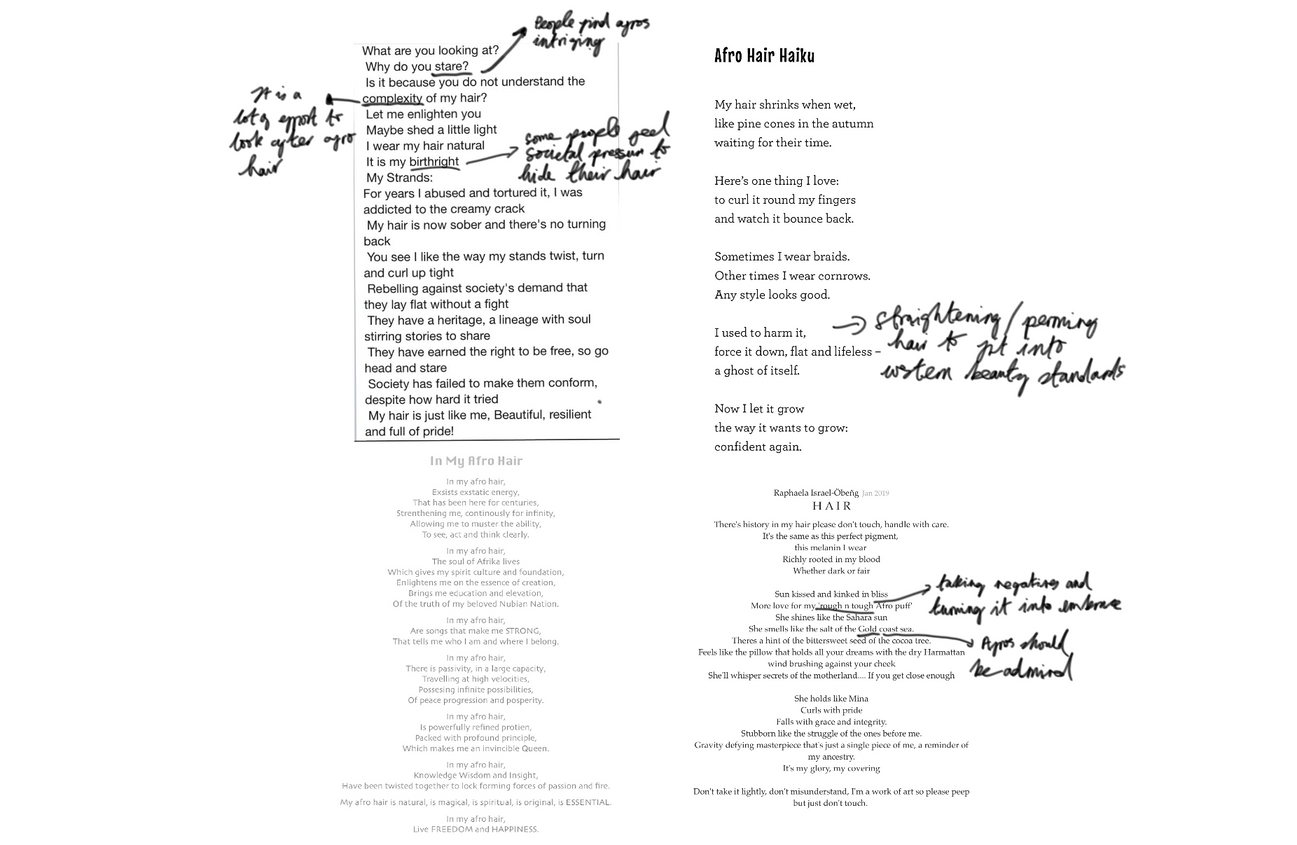 People find afros
intriging
What are you looking at?
Why do you stare?
Is it because you do not understand the
complexity of my hair?
Let me enlighten you
Maybe shed a little light
I wear my hair natural
It is my birthright
My Strands:
For years I abused and tortured it, I was
addicted to the creamy crack
My hair is now sober and there's no turning
back
You see I like the way my stands twist, turn
and curl up tight
Rebelling against society's demand that
they lay flat without a fight
They have a heritage, a lineage with soul
stirring stories to share
They have earned the right to be free, so go
head and stare
Society has failed to make them conform,
despite how hard it tried
My hair is just like me, Beautiful, resilient
and full of pride!
It is a
lot of effort to
look after afro
hair
some people feel
societal pressure to
hide their hair
Afro Hair Haiku
My hair shrinks when wet,
like pine cones in the autumn
waiting for their time.
Here's one thing I love:
to curl it round my fingers
and watch it bounce back.
Sometimes I wear braids.
Other times I wear cornrows.
Any style looks good.
I used to harm it,
force it down, flat and lifeless –
a ghost of itself.
Now I let it grow
the way it wants to grow:
confident again.
straightening / perming
hair to fit into
western beauty standards
In My Afro Hair
In my afro hair,
Exsists exstatic energy,
That has been here for centuries,
Strenthening me, continously for infinity,
Allowing me to muster the ability,
To see, act and think clearly.
In my afro hair,
The soul of Afrika lives
Which gives my spirit culture and foundation,
Enlightens me on the essence of creation,
Brings me education and elevation,
Of the truth of my beloved Nubian Nation.
In my afro hair,
Are songs that make me STRONG,
That tells me who I am and where I belong.
In my afro hair,
There is passivity, in a large capacity,
Travelling at high velocities,
Possesing infinite possibilities,
Of peace progression and posperity.
In my afro hair,
Is powerfully refined protien,
Packed with profound principle,
Which makes me an invincible Queen.
In my afro hair,
Knowledge Wisdom and Insight,
Have been twisted together to lock forming forces of passion and fire.
My afro hair is natural, is magical, is spiritual, is original, is ESSENTIAL.
In my afro hair,
Live FREEDOM and HAPPINESS.
Raphaela Israel-Öbeñg Jan 2019
HAIR
There's history in my hair please don't touch, handle with care.
It's the same as this perfect pigment,
this melanin I wear
Richly rooted in my blood
Whether dark or fair
Sun kissed and kinked in bliss
More love for my 'rough n tough Afro puff'
She shines like the Sahara sun
She smells like the salt of the Gold coast sea.
Theres a hint of the bittersweet seed of the cocoa tree.
Feels like the pillow that holds all your dreams with the dry Harmattan
wind brushing against your cheek
She'll whisper secrets of the motherland.... If you get close enough
She holds like Mina
Curls with pride
Falls with grace and integrity.
Stubborn like the struggle of the ones before me.
Gravity defying masterpiece that's just a single piece of me, a reminder of
my ancestry.
It's my glory, my covering
Don't take it lightly, don't misunderstand, I'm a work of art so please peep
but just don't touch.
taking negatives and
turning it into embrace
Afros should
be admired